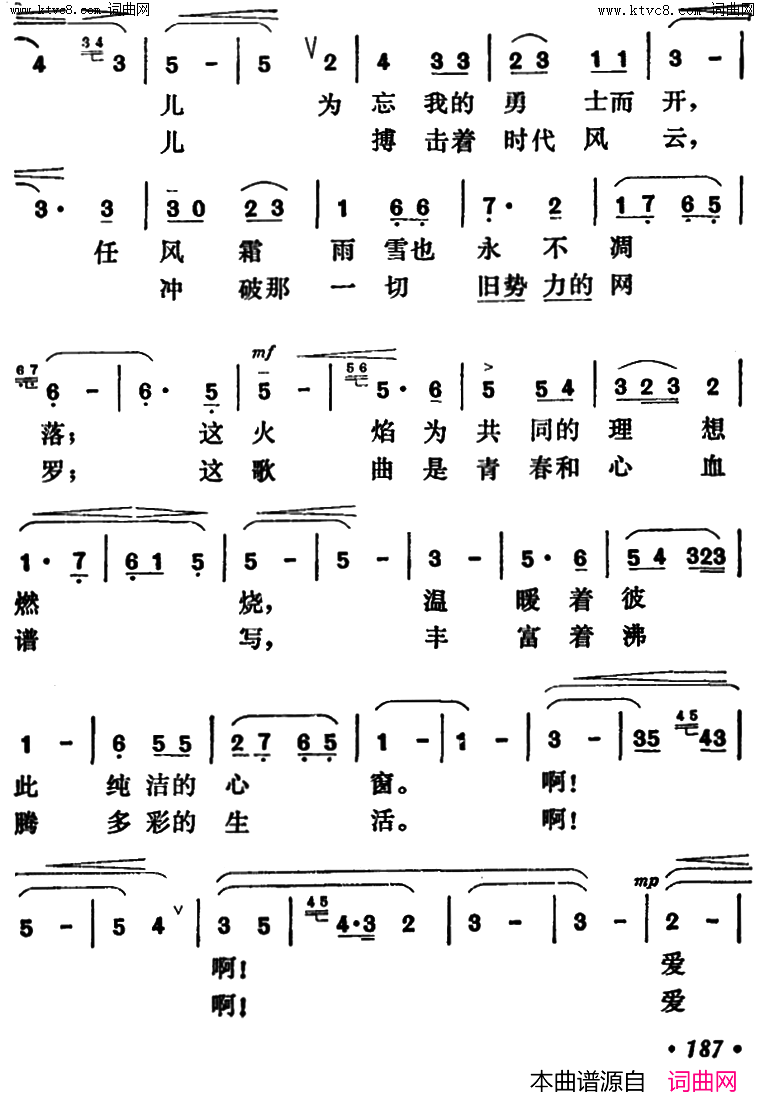 www.ktvc8.com 词曲网 www.ktvc8.com 词曲网
4 34 3 | 5 - | 5 2 | 4 3 3 | 2 3 1 1 | 3 - |
儿 为 忘 我的 勇 士而 开，
儿 搏 击着 时代 风 云，
3· 3 | 3 0 2 3 | 1 6 6 | 7· 2 | 1 7 6 5 |
任 风 霜 雨 雪也 永 不 凋
冲 破那 一 切 旧势 力的 网
mf
67 6 - | 6· 5 | 5 - | 56 5· 6 | 5 5 4 | 3 2 3 2 |
落； 这 火 焰 为 共 同的 理 想
罗； 这 歌 曲 是 青 春和 心 血
1· 7 | 6 1 5 | 5 - | 5 - | 3 - | 5· 6 | 5 4 3 2 3 |
燃 烧， 温 暖 着 彼
谱 写， 丰 富 着 沸
1 - | 6 5 5 | 2 7 6 5 | 1 - | 1 - | 3 - | 3 5 45 4 3 |
此 纯 洁的 心 窗。 啊！
腾 多 彩的 生 活。 啊！
mp
5 - | 5 4 | 3 5 | 45 4·3 2 | 3 - | 3 - | 2 - |
啊！ 爱
啊！ 爱
· 187 ·
本曲谱源自 词曲网